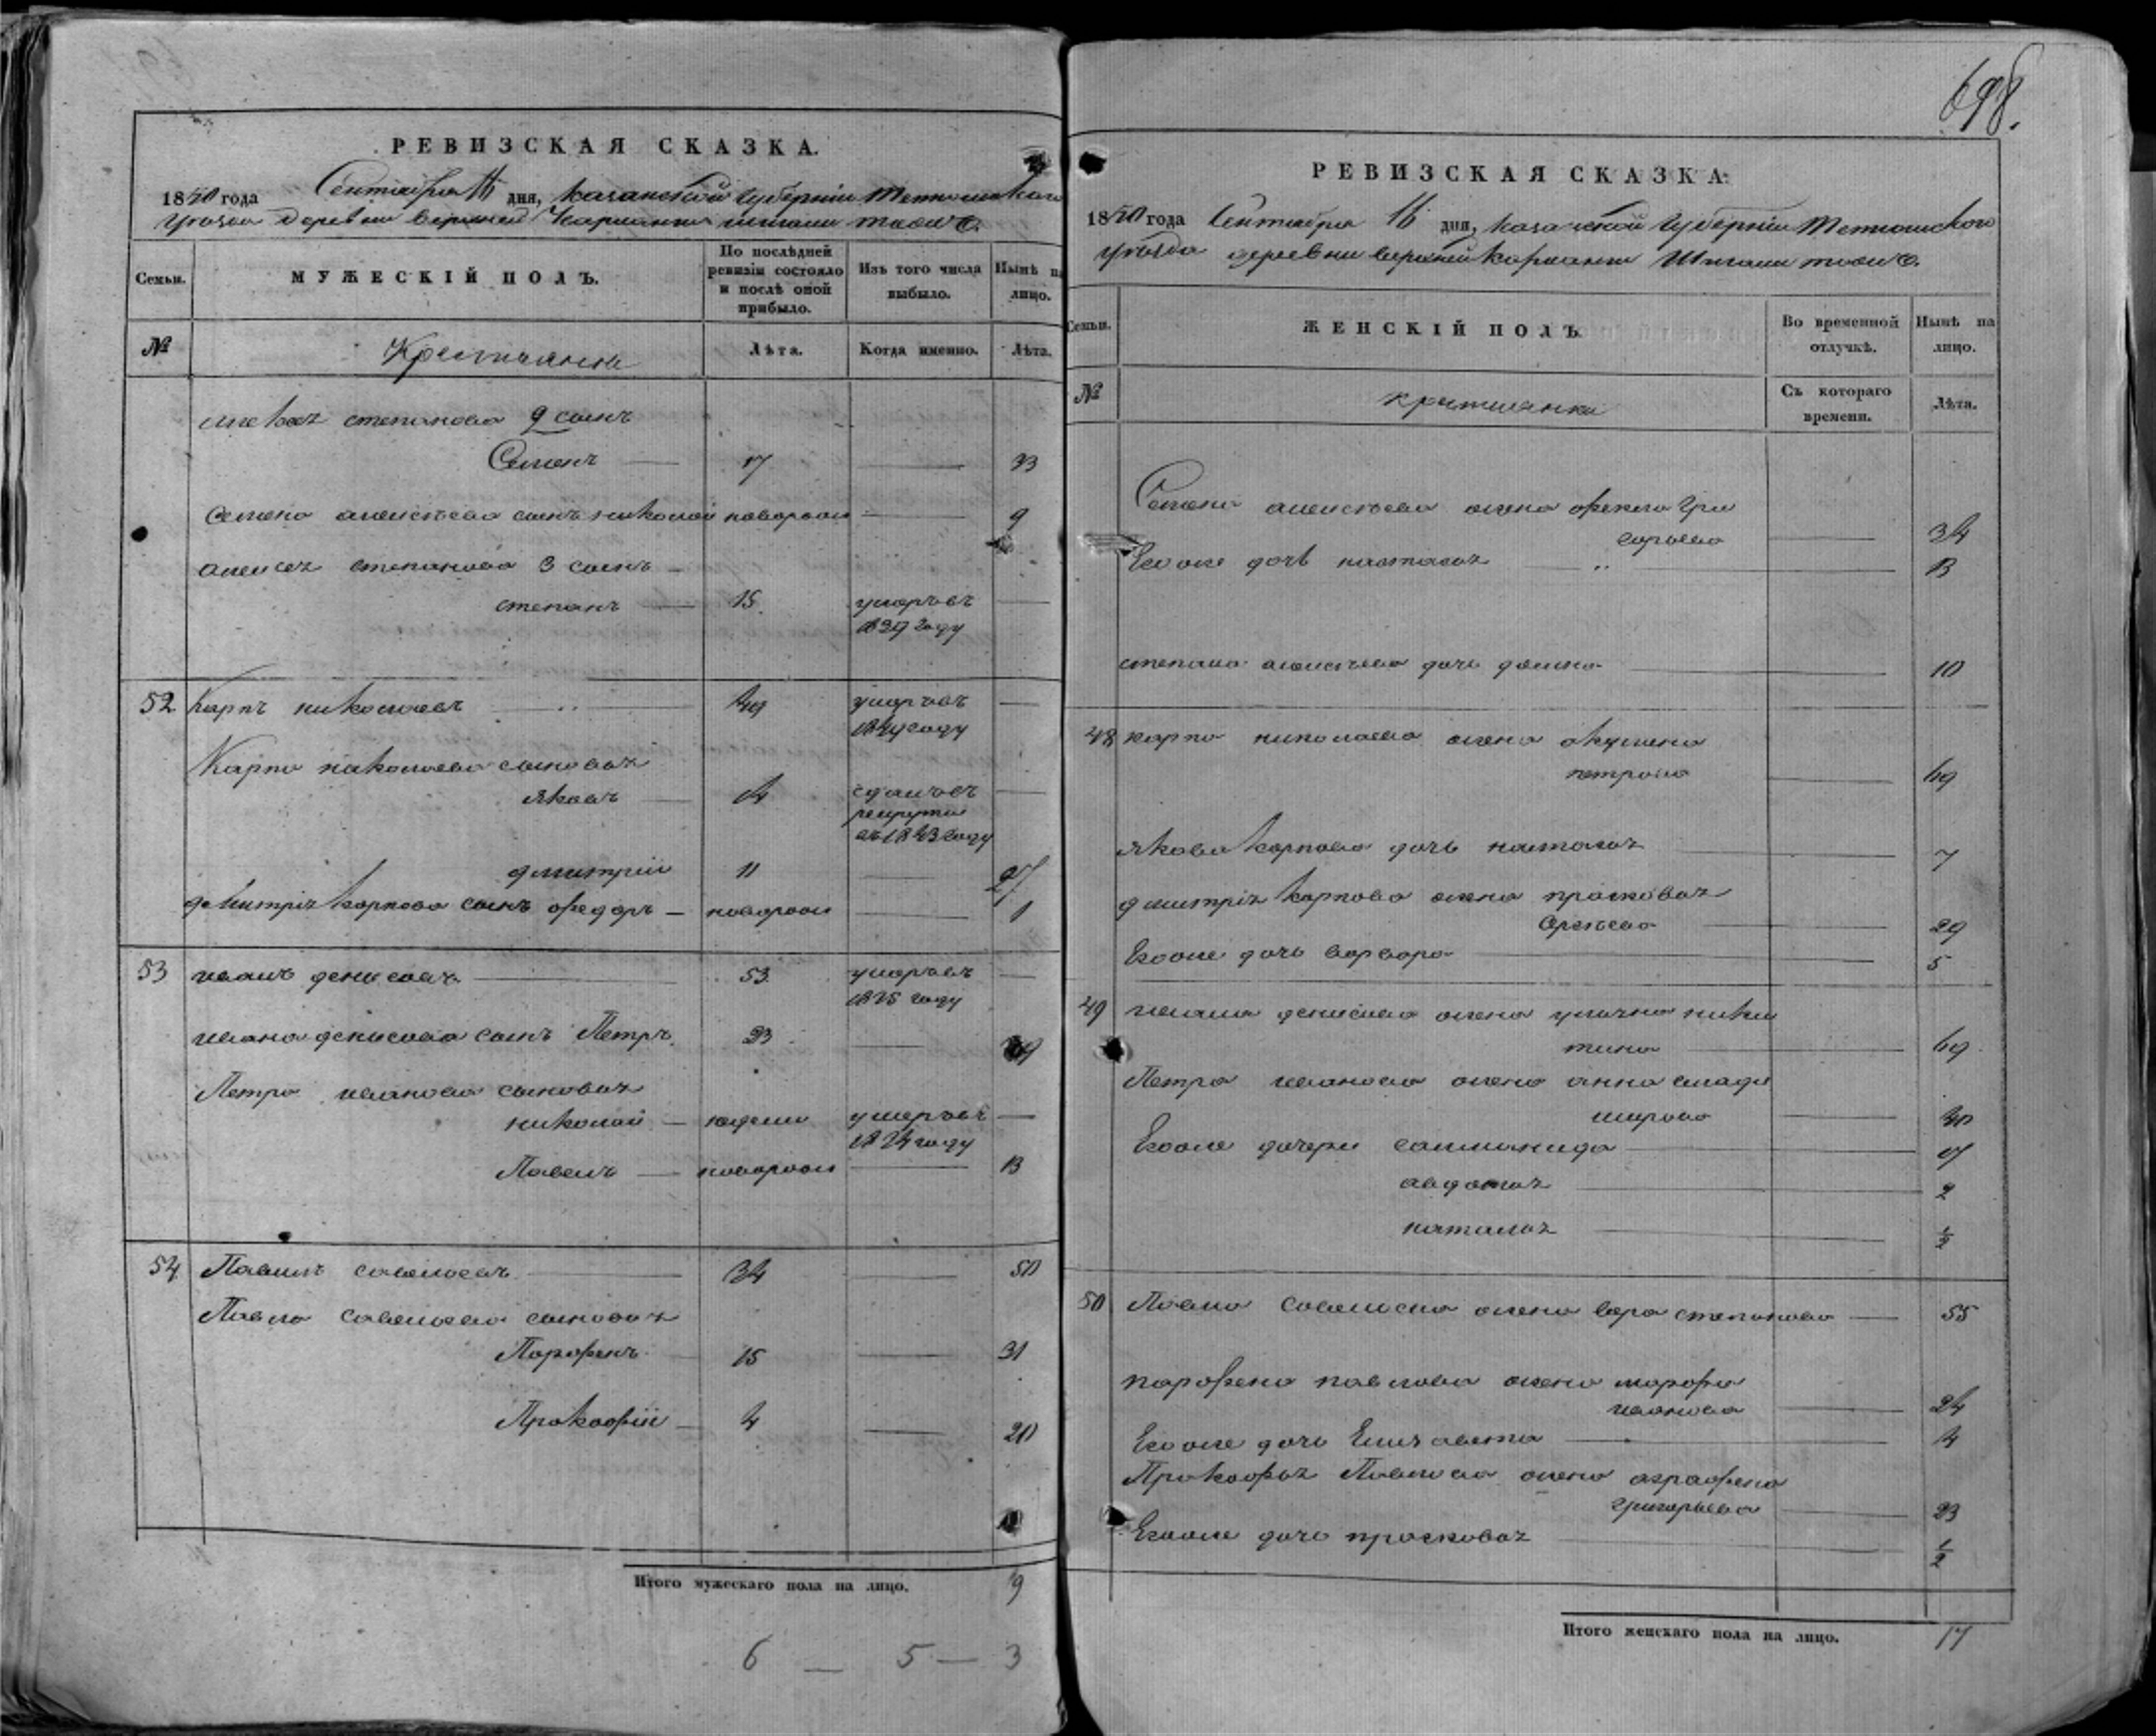 РЕВИЗСКАЯ СКАЗКА.
1850 года Сентября 16 дня, Казанской Губерніи Тетюшскаго
уѣзда деревни верхней Кармалки тожъ
Семьи. МУЖЕСКІЙ ПОЛЪ. По послѣдней ревизіи состояло и послѣ оной прибыло. Изъ того числа выбыло. Нынѣ на лицо.
№ Крестьяне Лѣта. Когда именно. Лѣта.
степанова 2 сынъ
Семенъ 17 33
Семена алексѣева сынъ николай новорож 9
алексѣя степанова 3 сынъ
степанъ 15 умеръ въ
1839 году
52 Карпъ николаевъ 49 умеръ въ
1849 году
Карпа николаева сыновья
яковъ 14 сданъ въ
рекруты
въ 1843 году
дмитрій 11 27
дмитрія карпова сынъ федоръ новорож 1
53 иванъ денисовъ 53 умеръ въ
году
ивана денисова сынъ Петръ 23 39
Петра иванова сыновья
николай недели умеръ въ
году
Павелъ новорож 13
54 Павелъ савельевъ 34 50
Павла савельева сыновья
Парфенъ 15 31
Прокофій 4 20
Итого мужескаго пола на лицо. 9
6 — 5 — 3
698.
РЕВИЗСКАЯ СКАЗКА.
1850 года Сентября 16 дня, Казанской Губерніи Тетюшскаго
уѣзда деревни верхней Кармалки тожъ
Семьи. ЖЕНСКІЙ ПОЛЪ. Во временной отлучкѣ. Нынѣ на лицо.
№ крестьянки Съ котораго времени. Лѣта.
Семена алексѣева жена фекла Гри
горьева 34
Его же дочь наталья 13
степана алексѣева дочь домна 10
48 карпа николаева жена акулина
петрова 69
якова карпова дочь наталья 7
дмитрія карпова жена прасковья
29
Его же дочь варвара 5
49 ивана денисова жена ульяна ники
тина 69
Петра иванова жена анна влади
мирова 40
Его же дочери соломанида 17
авдотья 2
наталья ½
50 Павла савельева жена вера степанова 55
парфена павлова жена марфа
иванова 24
Его же дочь Елизавета 4
Прокофья Павлова жена аграфена
григорьева 23
Его же дочь прасковья ½
Итого женскаго пола на лицо. 17